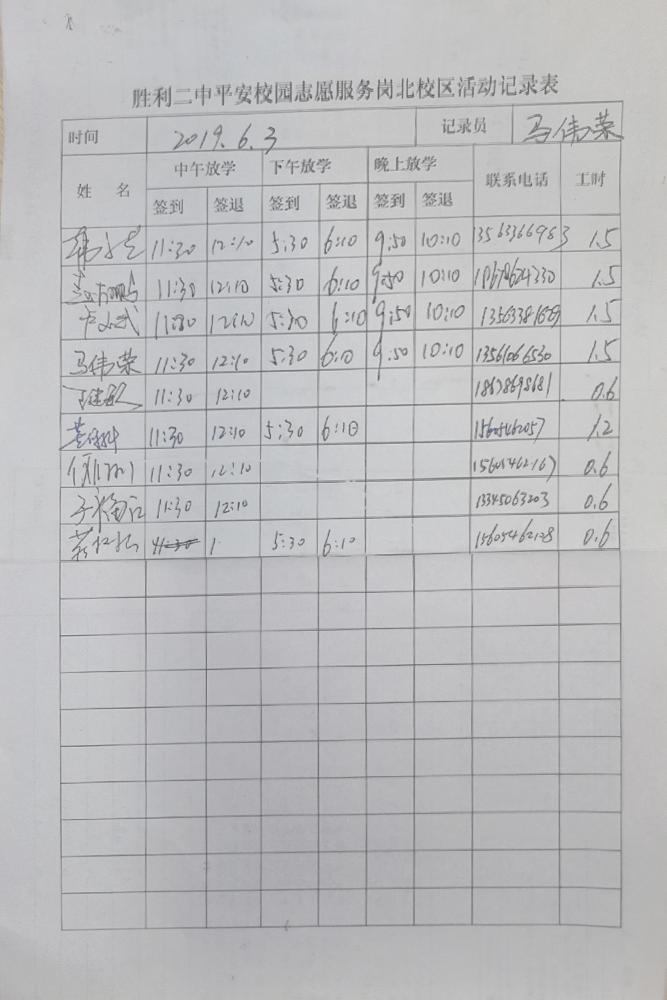 胜利二中平安校园志愿服务岗北校区活动记录表
时间 2019.6.3 记录员 马伟荣
姓名 中午放学 下午放学 晚上放学 联系电话 工时
签到 签退 签到 签退 签到 签退
11:30 12:10 5:30 6:10 9:50 10:10 13563366983 1.5
11:30 12:10 5:30 6:10 9:50 10:10 1.5
11:30 12:10 5:30 6:10 9:50 10:10 1.5
马伟荣 11:30 12:10 5:30 6:10 9:50 10:10 13561066530 1.5
11:30 12:10 18678695681 0.6
11:30 12:10 5:30 6:10 15605462057 1.2
11:30 12:10 15605462167 0.6
11:30 12:10 13345063203 0.6
11:30 1 5:30 6:10 15605462128 0.6